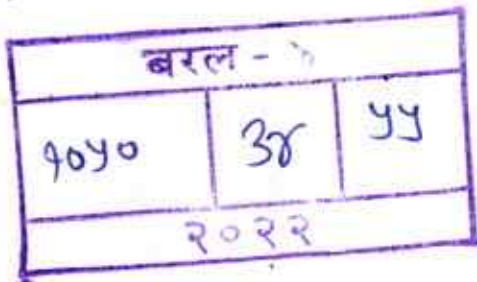 बरल -
१०५० ३४ ५५
२०२२